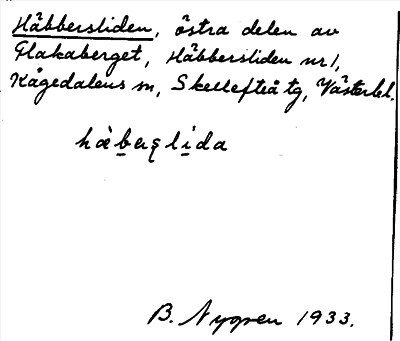 Häbbersliden, östra delen av
Flakaberget, Häbbersliden nr 1,
Kågedalens sn, Skellefteå tg, Västerbl.
hä̀bers̨lida
B. Nygren 1933.